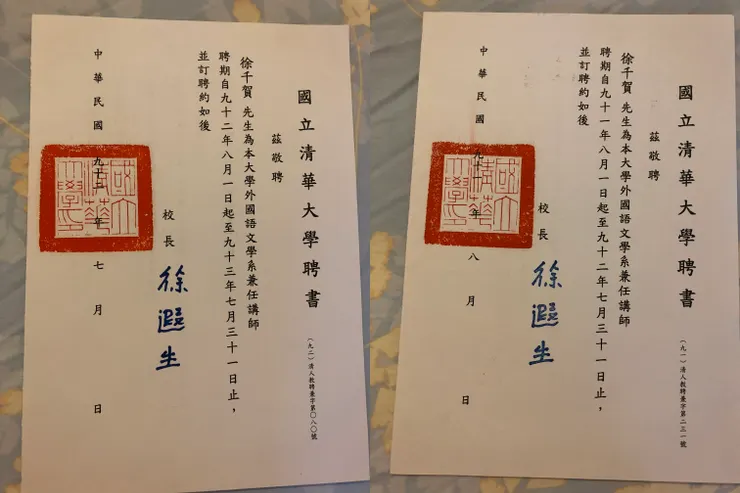 國立清華大學聘書
茲敬聘
徐千賀 先生為本大學外國語文學系兼任講師
聘期自九十二年八月一日起至九十三年七月三十一日止，
並訂聘約如後
校長 徐遐生
中華民國九十二年七月 日
（九二）清人教聘兼字第〇八〇號
國立清華大學聘書
茲敬聘
徐千賀 先生為本大學外國語文學系兼任講師
聘期自九十一年八月一日起至九十二年七月三十一日止，
並訂聘約如後
校長 徐遐生
中華民國九十一年八月 日
（九一）清人教聘兼字第二三一號